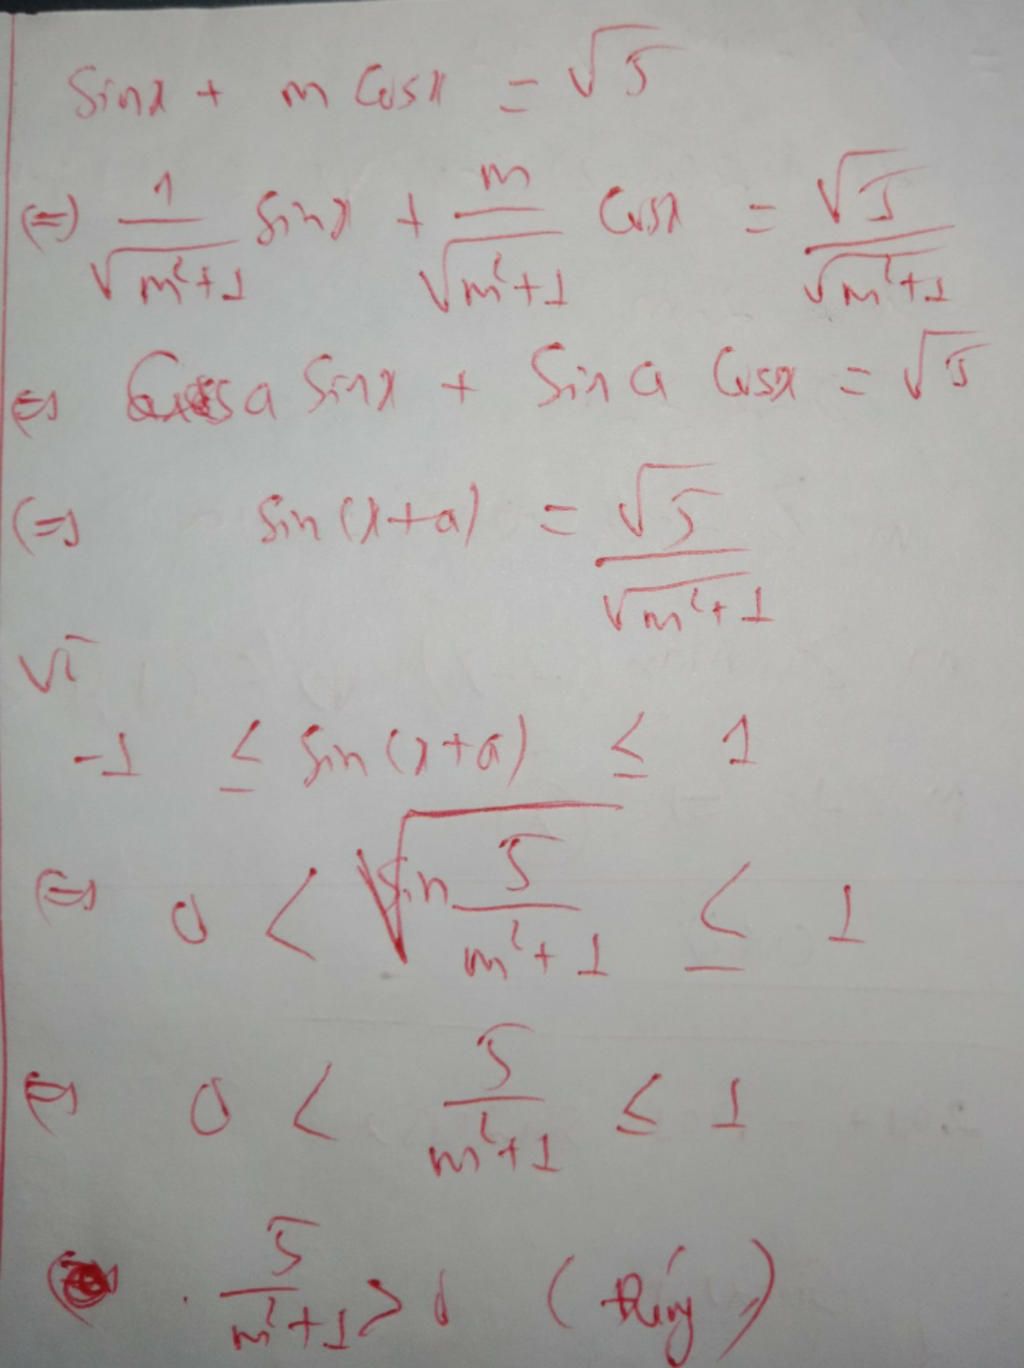 Sinx + m Cosx = √5
(=) 1/√(m²+1) Sinx + m/√(m²+1) Cosx = √5/√(m²+1)
(=) Cosa Sinx + Sin a Cosx = √5
(=) Sin(x+a) = √5/√(m²+1)
Vì
-1 ≤ Sin(x+a) ≤ 1
(=) 0 < √(5/(m²+1)) ≤ 1
(=) 0 < 5/(m²+1) ≤ 1
. 5/(m²+1) > 0 (đúng)